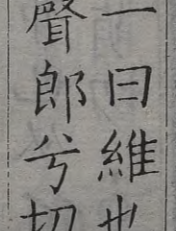 一曰維也
聲郎兮切